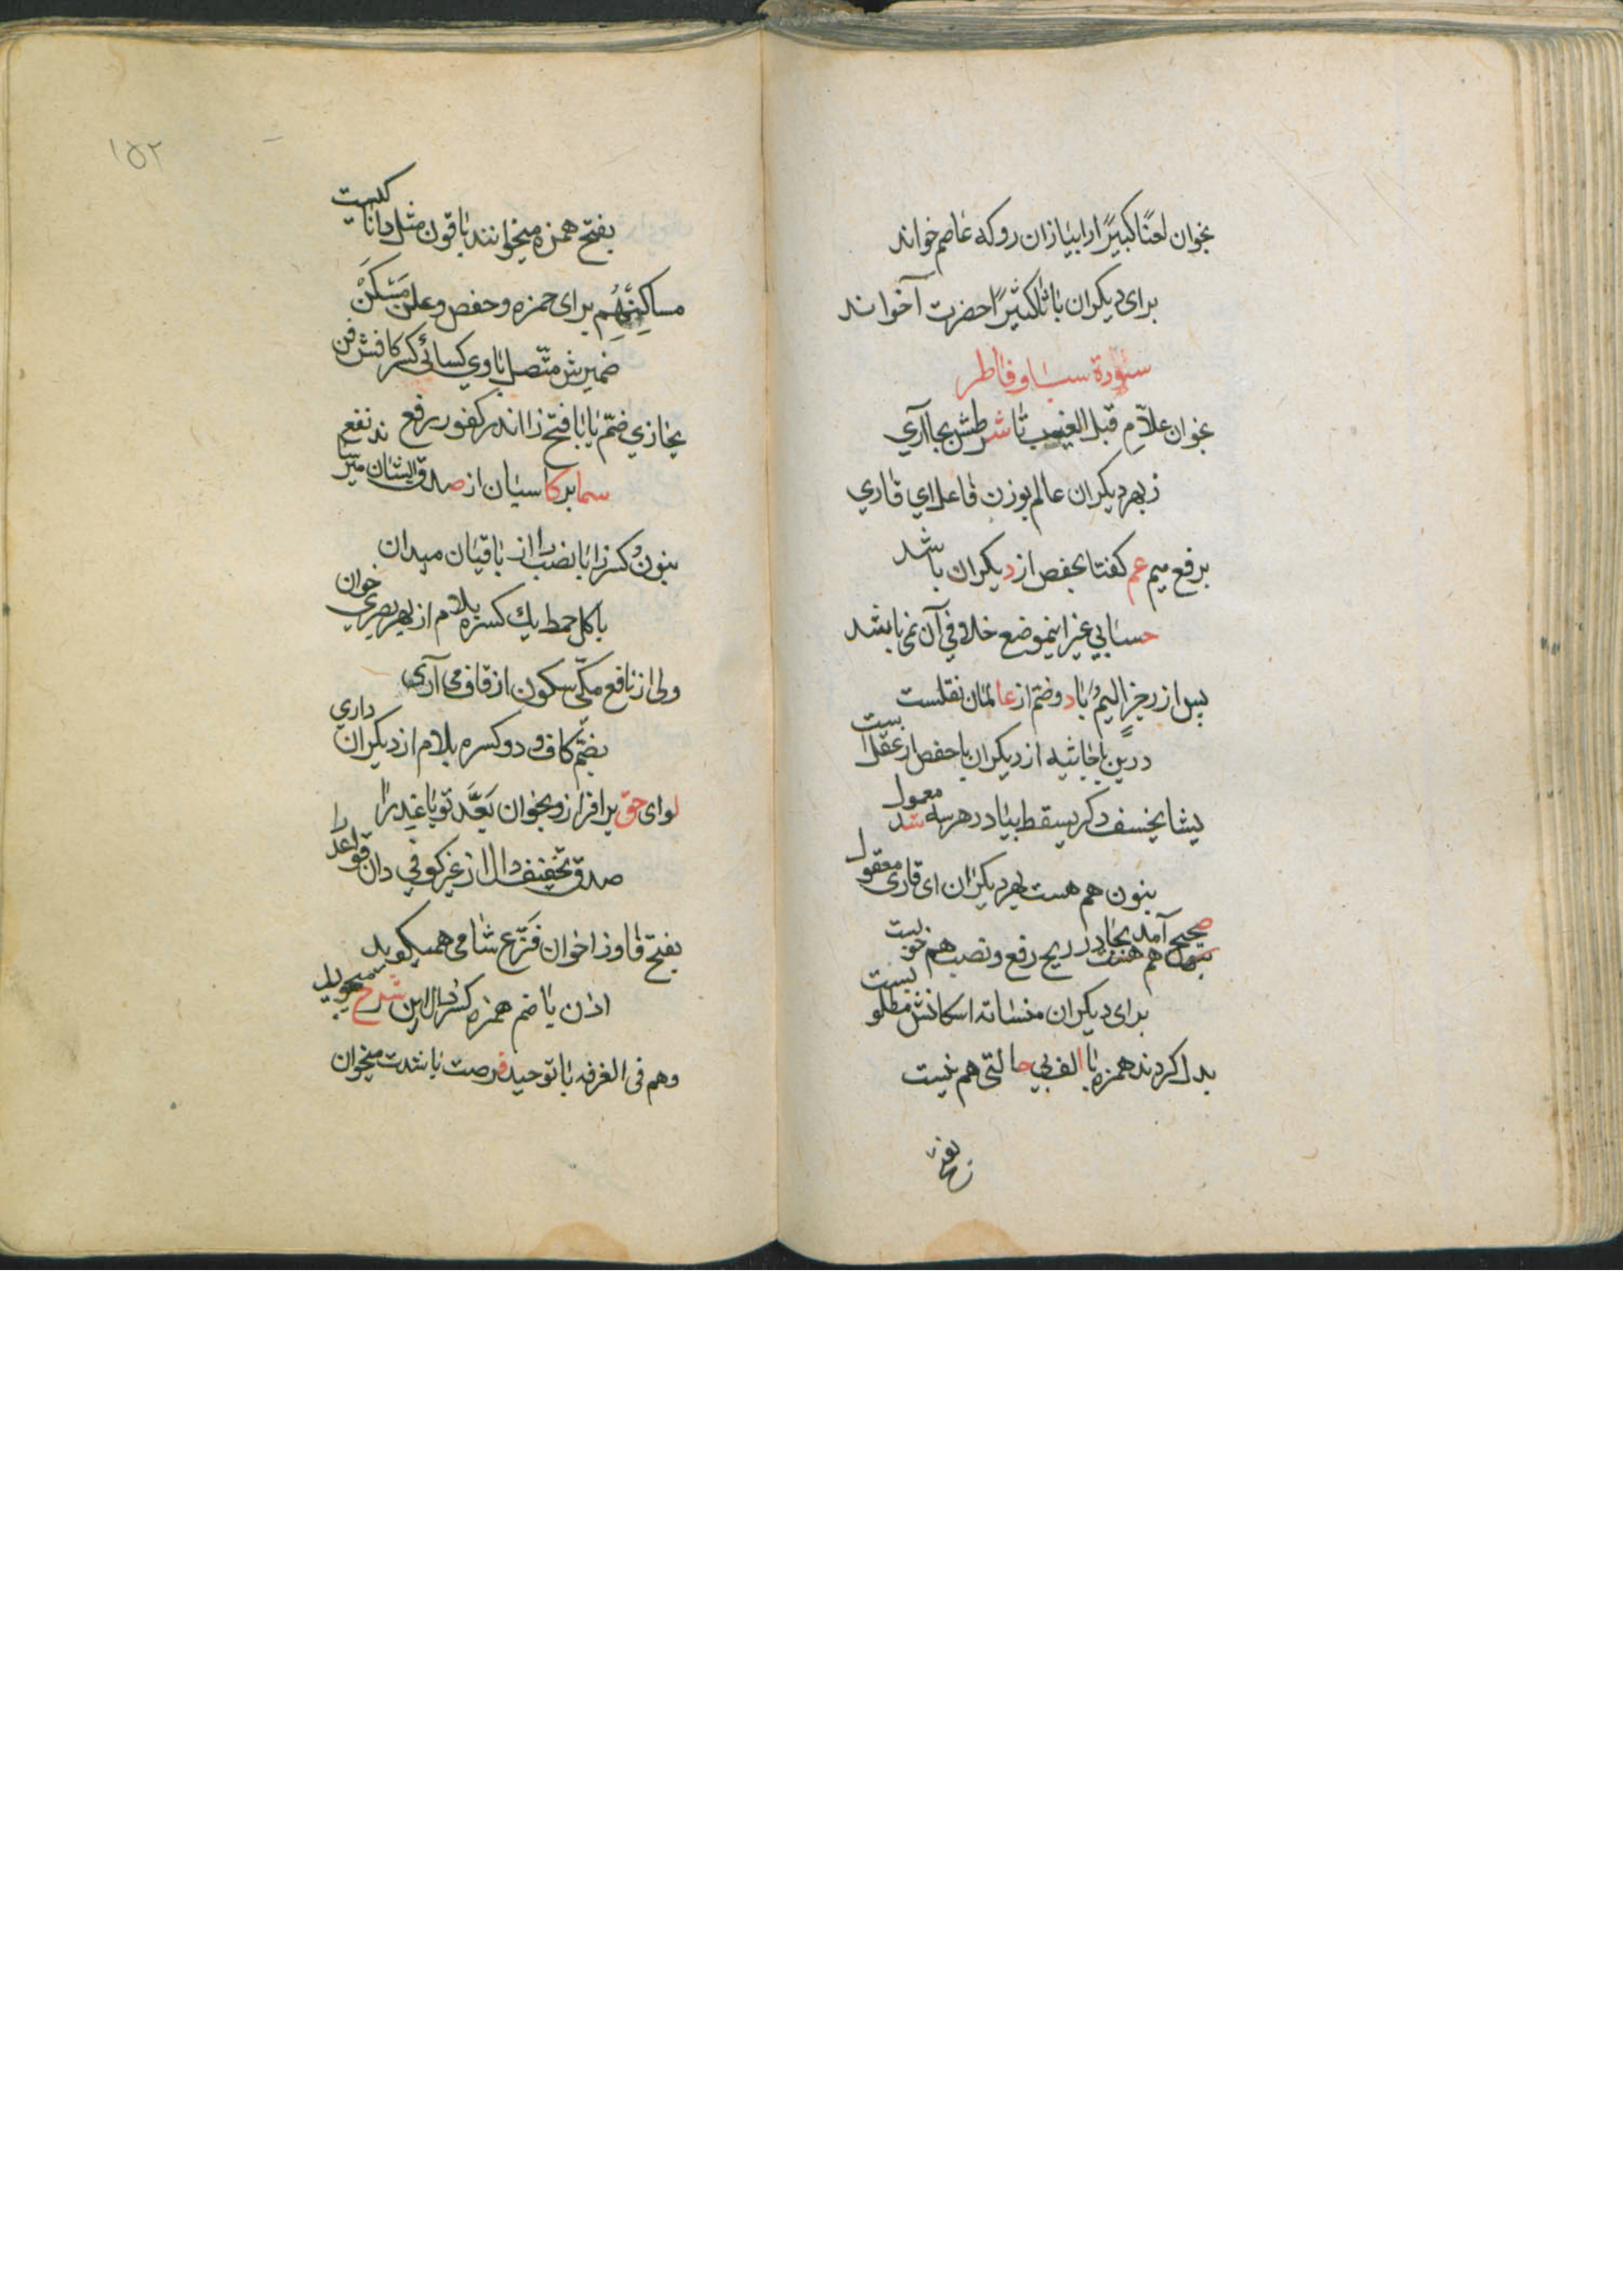 بخوان لعنًا كبيرًا را ببا زان رو كه عاصم خواند
براى ديكران با ثا كثيرًا حضرت آخواند
سورة سبا و فاطر
بخوان علّامِ قبل الغيب تا شرطش بجا آرى
ز بهر ديكران عالم بوزن فاعل اى قارى
برفع ميم عم كفتا بخفص از ديكران باشد
حسابى غير اينموضع خلافى آن نمى باشد
پس از رجزٍ اليمٌ با دو ضم از عالمان نقلست
درين با جاثيه از ديكران با حفص از عقلست
يشا يخسف دكر يسقط بيا در هر سه شد معمول
بنون هم هست بهر ديكران اى قارى معقول
صحيح آمد بجا در ريح رفع و نصب هم خوبست
براى ديكران منساته اسكانش مطلوبست
بدل كردند همزه با الف بى حالتى هم نيست
بفتح
١٥٢
بفتح همزه ميخوانند باقون مثل دانا كيست
مساكِنِهِم براى حمزه و حفص و على مَسْكَنْ
ضميرش متّصل با وى كسائى كسر كافش فن
يجازي ضمّ يا با فتح زا اندر كفور رفع
سما بر كاسيان از صدق ايشان ميرساند نفع
بنون و كسر زا با نصب را از باقيان ميدان
باكل خمط يك كسره بلام از بهر بصرى خوان
ولى از نافع مكّى سكون از قاف مى آرى
بضمّ كاف و دو كسره بلام از ديكران دارى
لواى حق بر افراز و بخوان بَعَّد تو باعد را
صدق تخفيف دال از غير كوفى دان قواعد را
بفتح فا و زا خوان فَزَّع شامى هميكويد
اذن با ضم همزه كسر ذال اين شرح ميجويد
و هم فى الغرفه با توحيد فرصت باشدت ميخوان